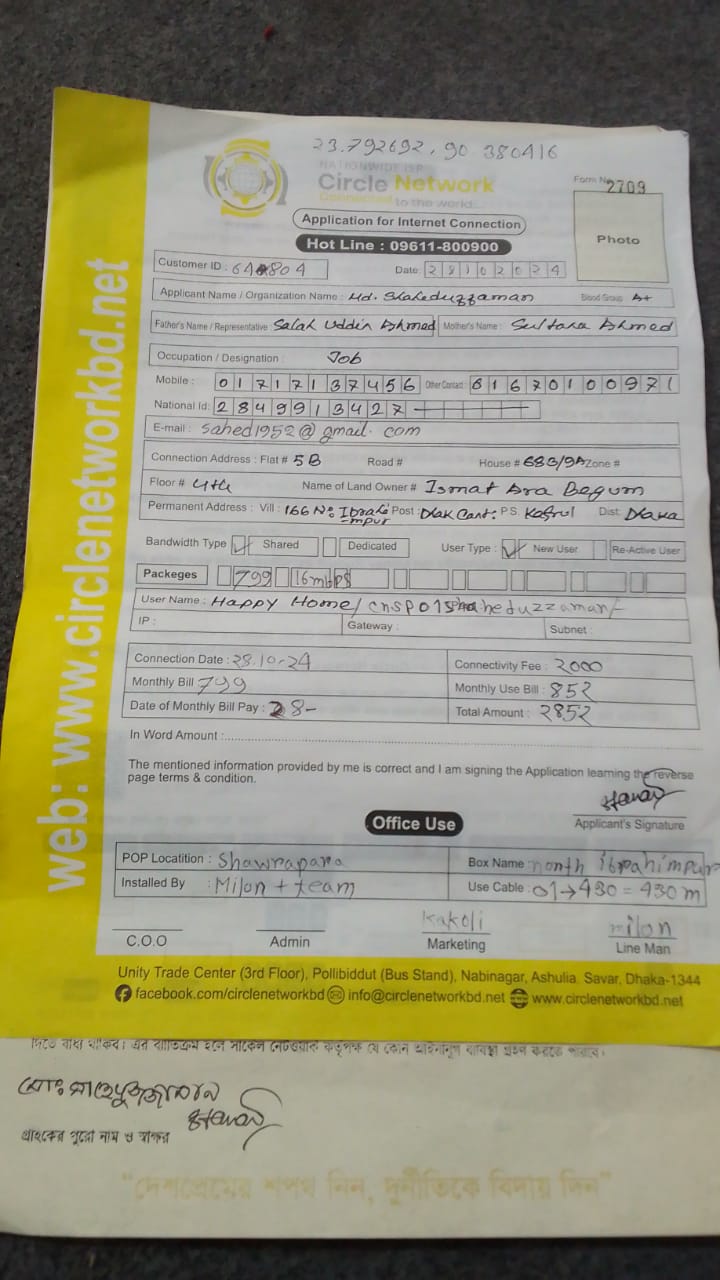 23.792692, 90 380416
NATIONWIDE ISP
Circle Network
Connected to the world...
Form No 2709
Application for Internet Connection
Hot Line : 09611-800900
Photo
Customer ID :
Date: 28102024
Applicant Name / Organization Name : Md. Shaheduzzaman Blood Group A+
Father's Name / Representative Salah Uddin Ahmed Mother's Name : Sultana Ahmed
Occupation / Designation : Job
Mobile : 01717137456 Other Contact :
National Id: 2849913427
E-mail : sahed1952@gmail.com
Connection Address : Flat # 5B Road # House # Zone #
Floor # 4th Name of Land Owner # Ismat Ara Begum
Permanent Address : Vill : 166 No Ibrahimpur Post : Dhak Cant: PS Kafrul Dist: Dhaka
Bandwidth Type ✓ Shared Dedicated User Type : ✓ New User Re-Active User
Packeges 799 16mbps
User Name : Happy Home/
IP : Gateway : Subnet :
Connection Date : 28.10-24 Connectivity Fee : 2000
Monthly Bill 799 Monthly Use Bill : 852
Date of Monthly Bill Pay : 28- Total Amount : 2852
In Word Amount :
The mentioned information provided by me is correct and I am signing the Application learning the reverse
page terms & condition.
Applicant's Signature
Office Use
POP Locatition : Shawrapara Box Name north ibrahimpur
Installed By : Milon + team Use Cable : 01→430 = 430 m
Kakoli milon
C.O.O Admin Marketing Line Man
Unity Trade Center (3rd Floor), Pollibiddut (Bus Stand), Nabinagar, Ashulia. Savar, Dhaka-1344
facebook.com/circlenetworkbd info@circlenetworkbd.net www.circlenetworkbd.net
web: www.circlenetworkbd.net
দিতে বাধ্য থাকিব। এর ব্যতিক্রম হলে সার্কেল নেটওয়ার্ক কর্তৃপক্ষ যে কোন আইনানুগ ব্যবস্থা গ্রহণ করতে পারবে।
মোঃ সাহেদুজ্জামান
গ্রাহকের পুরো নাম ও স্বাক্ষর
"দেশপ্রেমের শপথ নিন, দুর্নীতিকে বিদায় দিন"